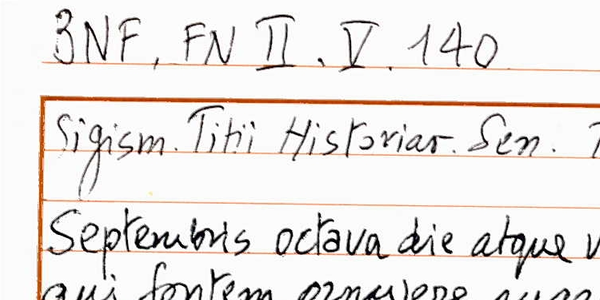 BNF, FN II. V. 140
Sigism. Titii Historiar. Sen.
Septembris octava die atque
qui fontem ornavere